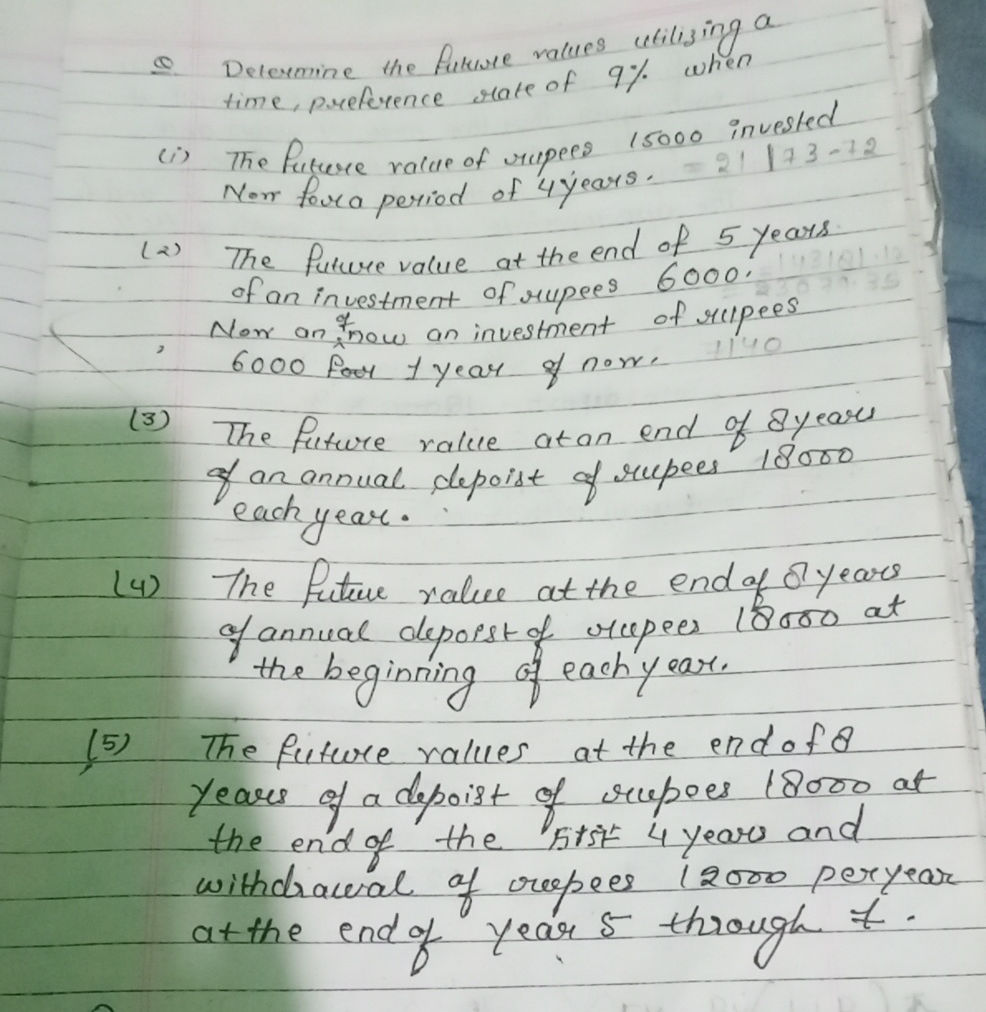 Q Determine the future values utilizing a
time, preference rate of 9% when
(i) The future value of rupees 15000 invested
Now for a period of 4 years. = 21173-72
(2) The future value at the end of 5 years
of an investment of rupees 6000.
Now an of now an investment of rupees
6000 for 1 year of now. 7140
(3) The future value at an end of 8 years
of an annual depoist of rupees 18000
each year.
(4) The future value at the end of 8 years
of annual depoist of rupees 18000 at
the beginning of each year.
(5) The future values at the end of 8
years of a depoist of rupees 18000 at
the end of the first 4 years and
withdrawal of rupees 12000 per year
at the end of year 5 through 7.